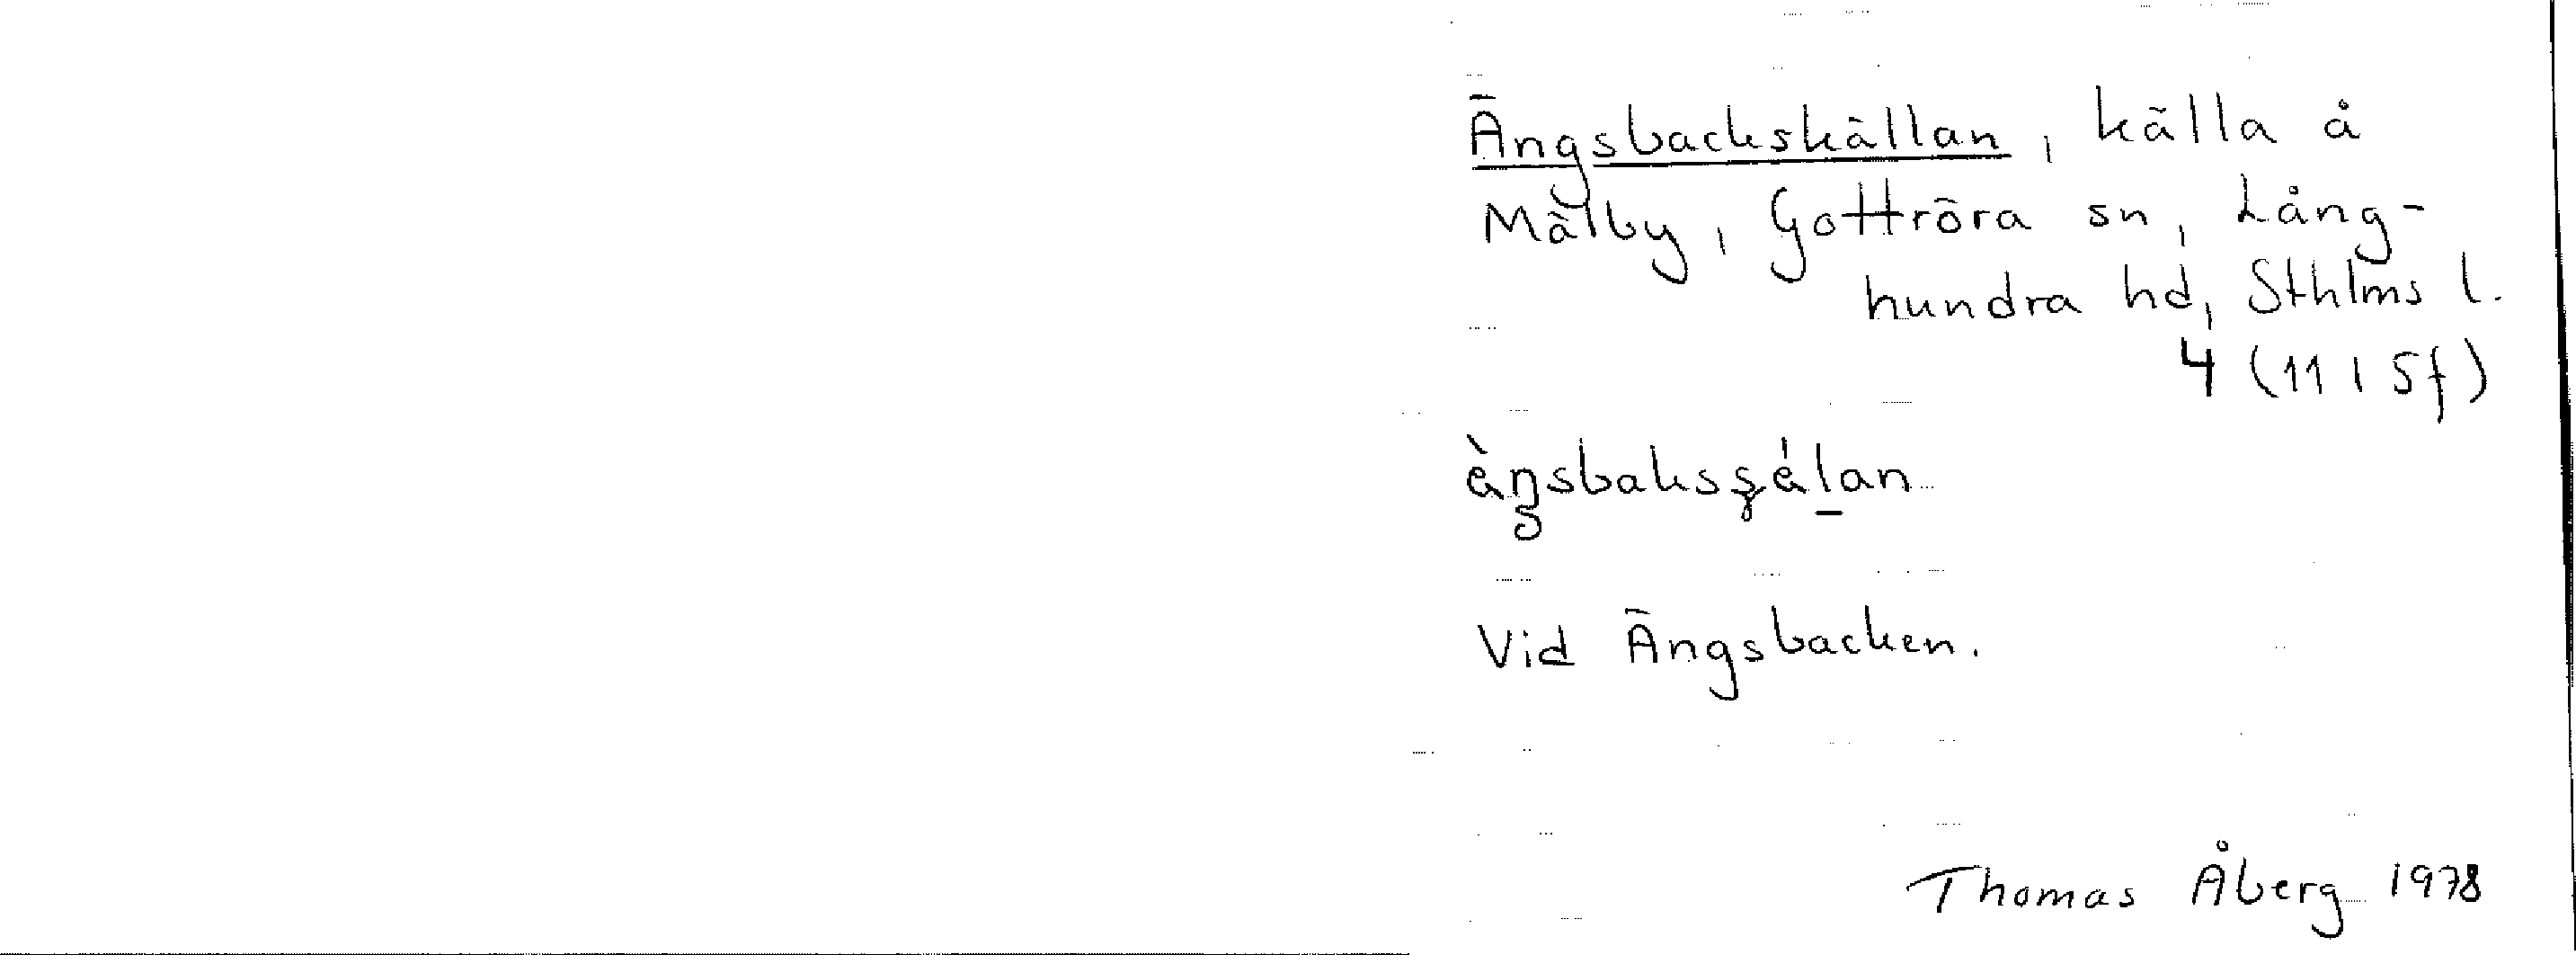 Ängsbackskällan, källa å
Mälby, Gottröra sn, Lång-
hundra hd, Sthlms l.
4 (11 I 5f)
Vid Ängsbacken.
Thomas Åberg 1978